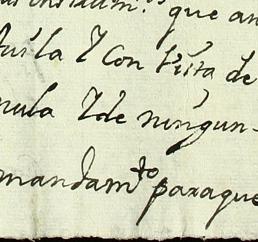 que an
uila Y con vista de
nula Y de ningun-
mandam.to paraque